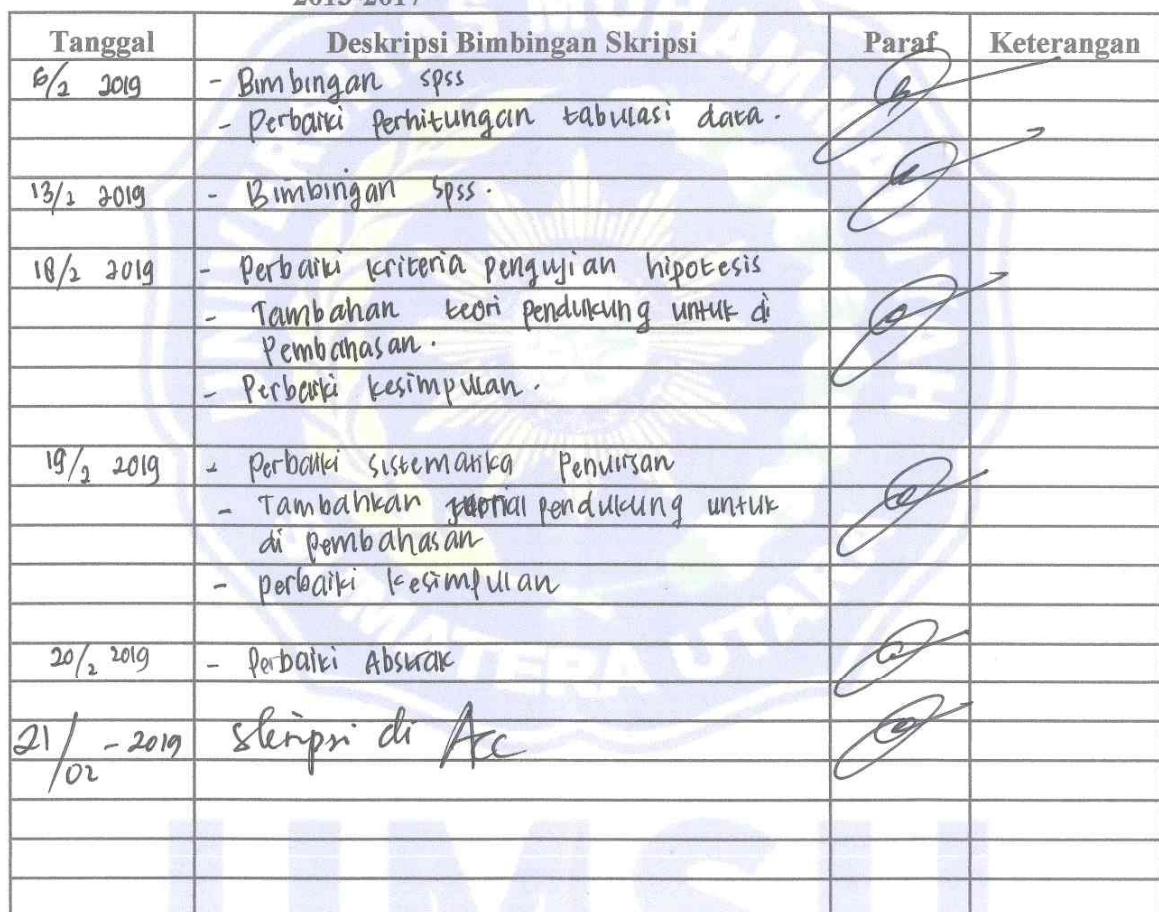 2013-2017
Tanggal Deskripsi Bimbingan Skripsi Paraf Keterangan
6/2 2019 - Bimbingan spss
- Perbaiki Perhitungan tabulasi data.
13/2 2019 - Bimbingan spss.
18/2 2019 - Perbaiki kriteria pengujian hipotesis
- Tambahan teori pendukung untuk di
Pembahasan.
- Perbaiki kesimpulan.
19/2 2019 - Perbaiki sistematika Penulisan
- Tambahkan pendukung untuk
di pembahasan
- perbaiki kesimpulan
20/2 2019 - Perbaiki Abstrak
21/02 - 2019 Skripsi di Acc
MATERA UTARA
UMSU